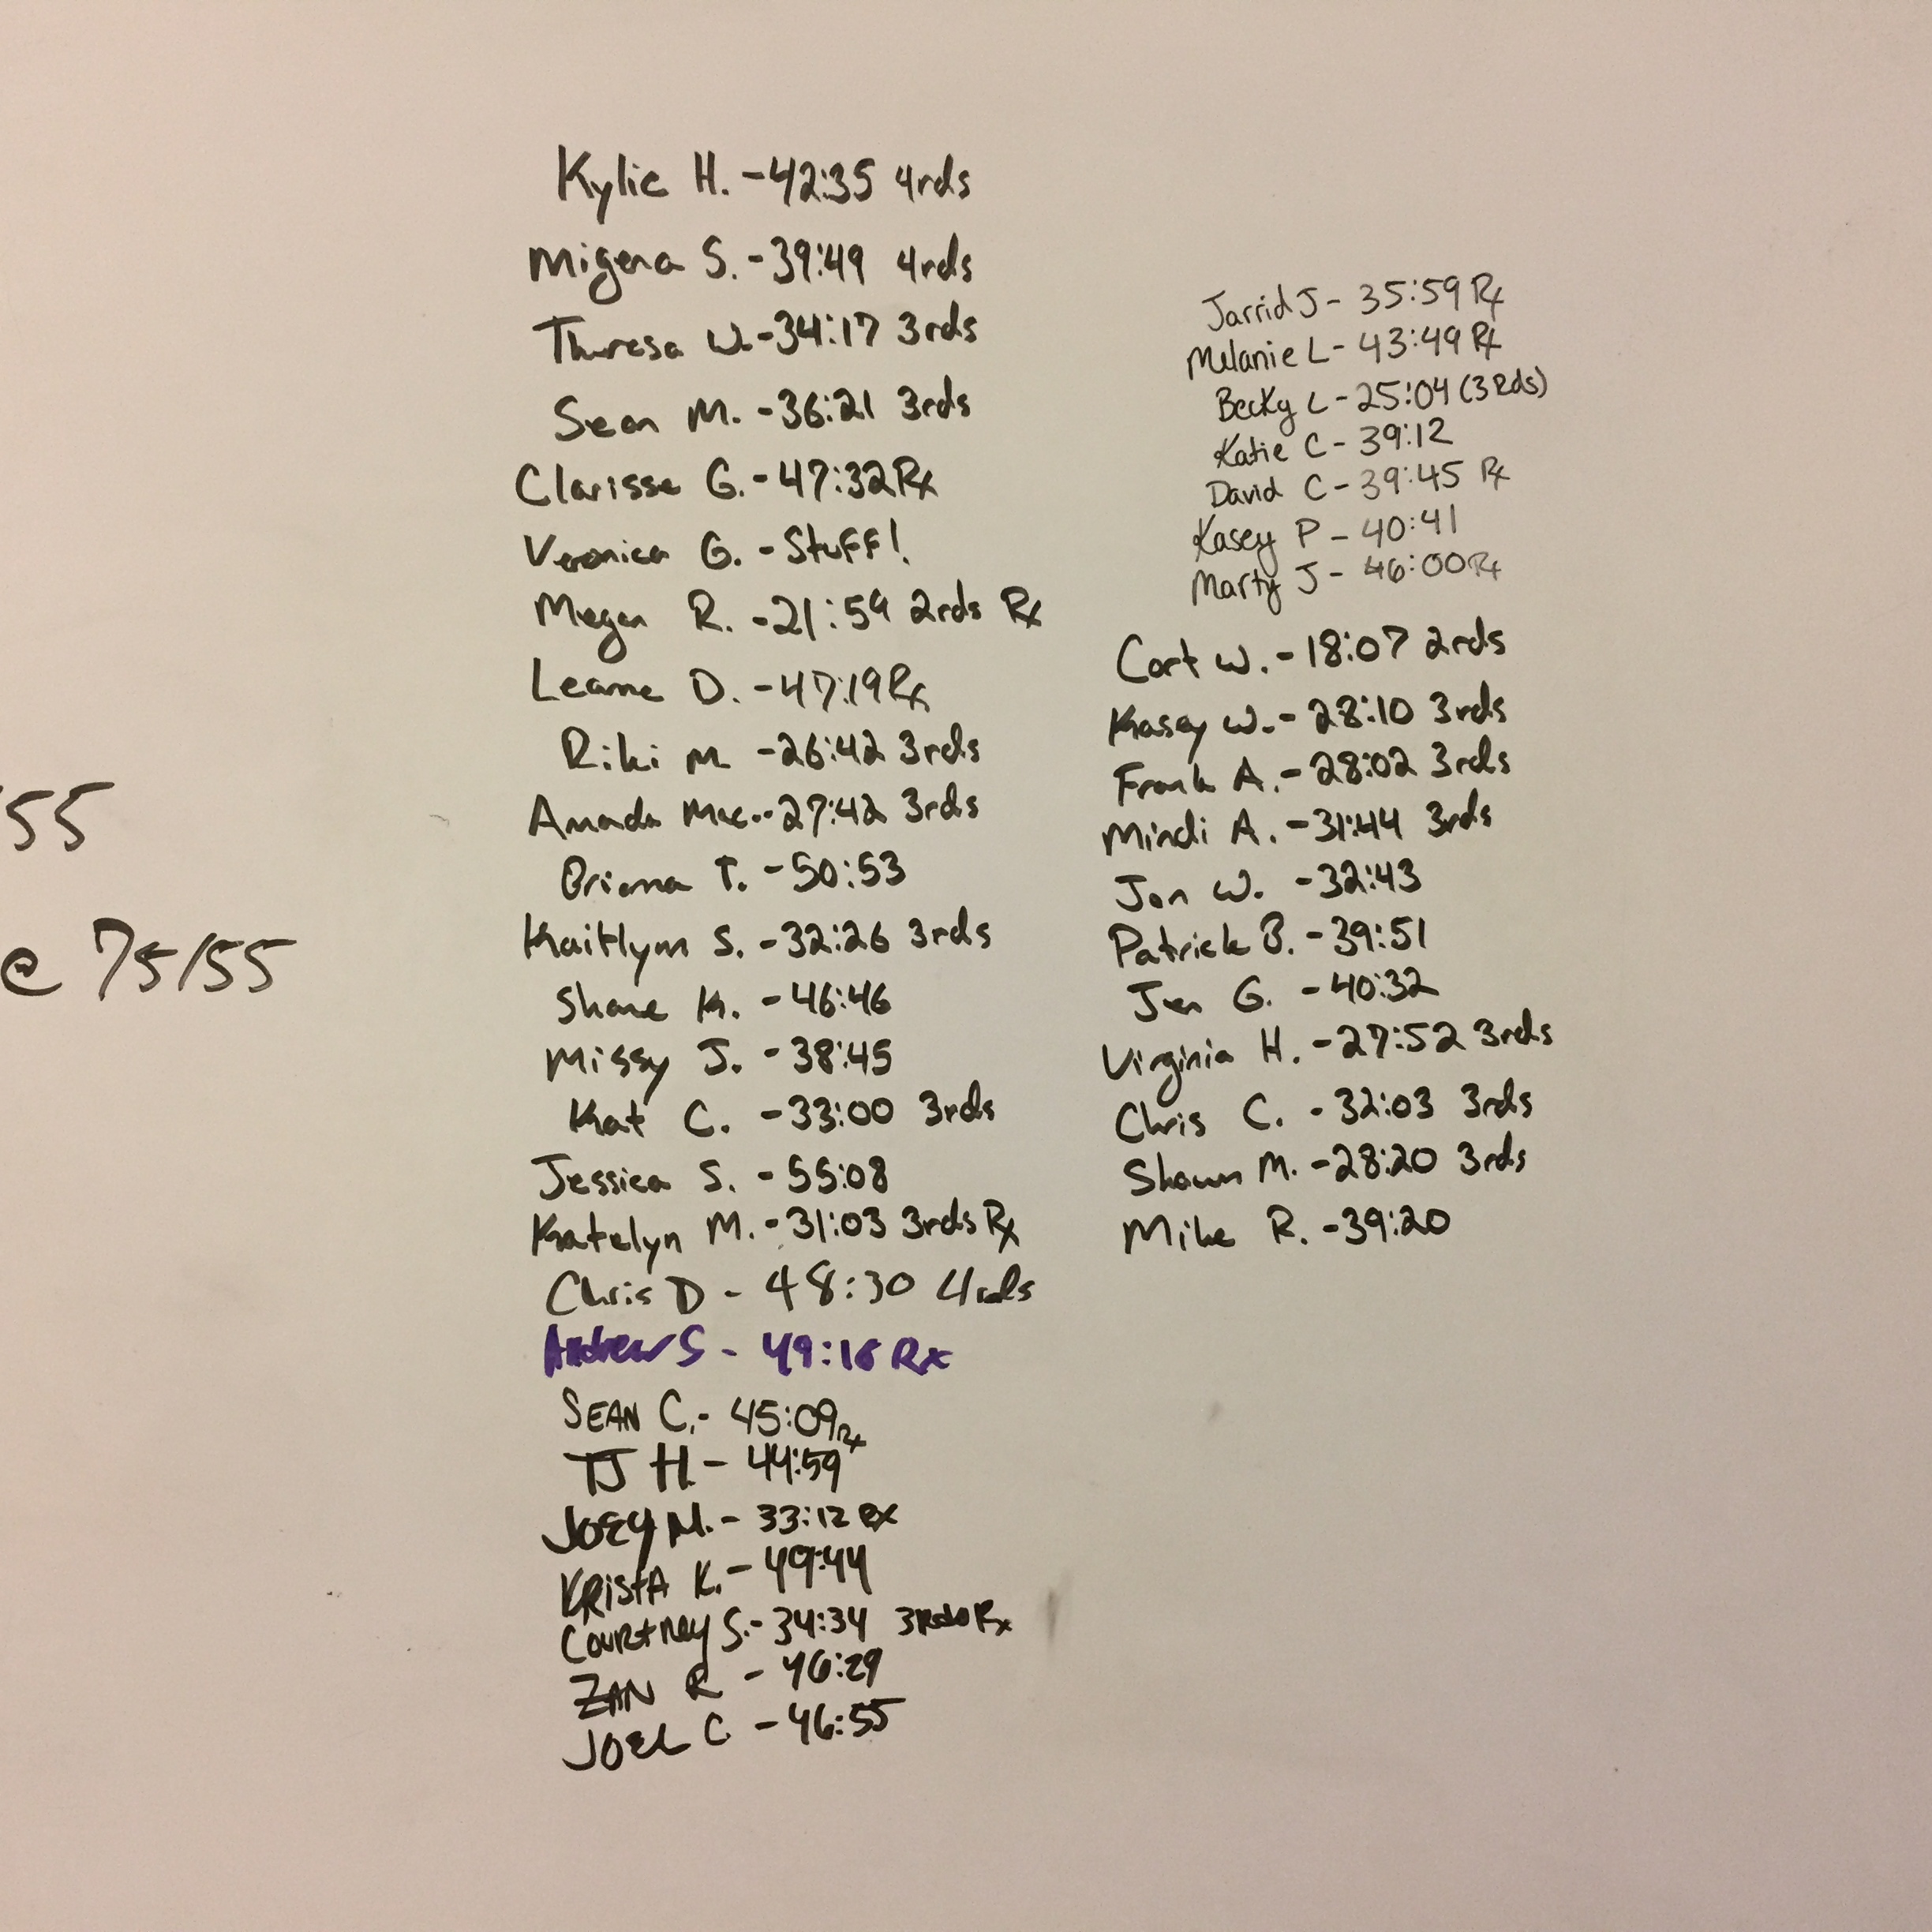 Kylie H. - 42:35 4rds
Migena S. - 39:49 4rds
Theresa W. - 34:17 3rds
Sean M. - 36:21 3rds
Clarisse G. - 47:32 Rx
Veronica G. - Stuff!
Megan R. - 21:59 2rds Rx
Leanne D. - 47:19 Rx
Riki M - 26:42 3rds
Amanda Mac. - 27:42 3rds
Brianna T. - 50:53
Kaitlynn S. - 32:26 3rds
Shane K. - 46:46
Missy J. - 38:45
Kat C. - 33:00 3rds
Jessica S. - 55:08
Katelyn M. - 31:03 3rds Rx
Chris D - 48:30 4rds
Andrew S - 49:16 Rx
SEAN C. - 45:09 Rx
TJ H - 44:59
JOEY M. - 33:12 RX
KRISTA K. - 49:44
COURTNEY S. - 34:34 3Rds Rx
ZAN R - 46:29
JOEL C - 46:55
Jarrid J - 35:59 Rx
Melanie L - 43:49 Rx
Becky L - 25:04 (3 Rds)
Katie C - 39:12
David C - 39:45 Rx
Kasey P - 40:41
Marty J - 46:00 Rx
Cort W. - 18:07 2rds
Kasey W. - 28:10 3rds
Frank A. - 28:02 3rds
Mindi A. - 31:44 3rds
Jon W. - 32:43
Patrick B. - 39:51
Jen G. - 40:32
Virginia H. - 27:52 3rds
Chris C. - 32:03 3rds
Shawn M. - 28:20 3rds
Mike R. - 39:20
55
@ 75/55